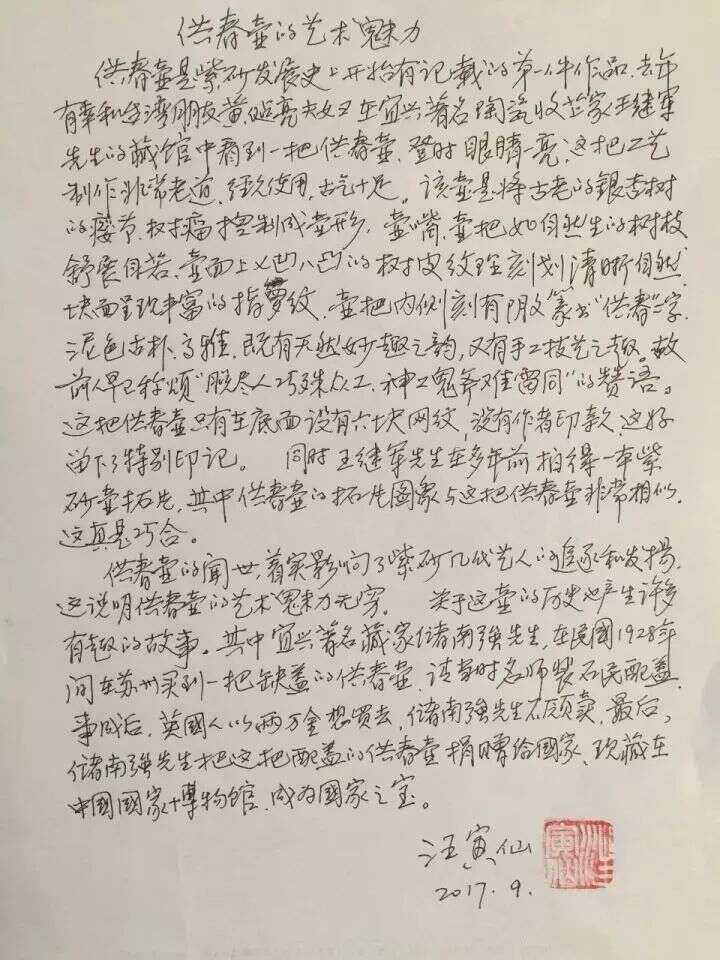 供春壶的艺术魅力
供春壶是紫砂发展史上开始有记载的第一件作品，去年
有幸和台湾朋友黄延亮夫妇在宜兴著名陶瓷收芷家王继军
先生的藏馆中看到一把供春壶，登时眼睛一亮，这把工艺
制作非常老道，经久使用，古气十足。该壶是将古老的銀杏树
的瘿节，树瘤控制成壶形，壶嘴、壶把如自然生的树枝
舒展自若，壶面上乂凹八凸的树皮纹理刻划清晰自然
块面呈现丰富的指纹，壶把内侧刻有阴文篆书“供春”二字，
泥色古朴、高雅，既有天然妙趣之韵，又有手工技艺之趣。故
前人早已称颂“脱尽人巧殊众工，神工鬼斧难雷同”的赞语。
这把供春壶只有在底面设有六块网纹，没有作者印款，这好
留下了特别印记。同时王继军先生在多年前拍得一本紫
砂壶拓片，其中供春壶的拓片圖象与这把供春壶非常相似，
这真是巧合。
供春壶的闻世，着实影响了紫砂几代艺人的追逐和发揚，
这说明供春壶的艺术魅力无穷。关于这壶的历史也产生许多
有趣的故事。其中宜兴著名藏家储南強先生，在民國1928年
间在苏州买到一把缺盖的供春壶，请当时名师裴石民配盖，
事成后，英國人以两万金想買去，储南強先生不願卖，最后，
储南強先生把这把配盖的供春壶捐贈给國家，现藏在
中國國家博物馆，成为國家之宝。
汪寅仙
2017.9.